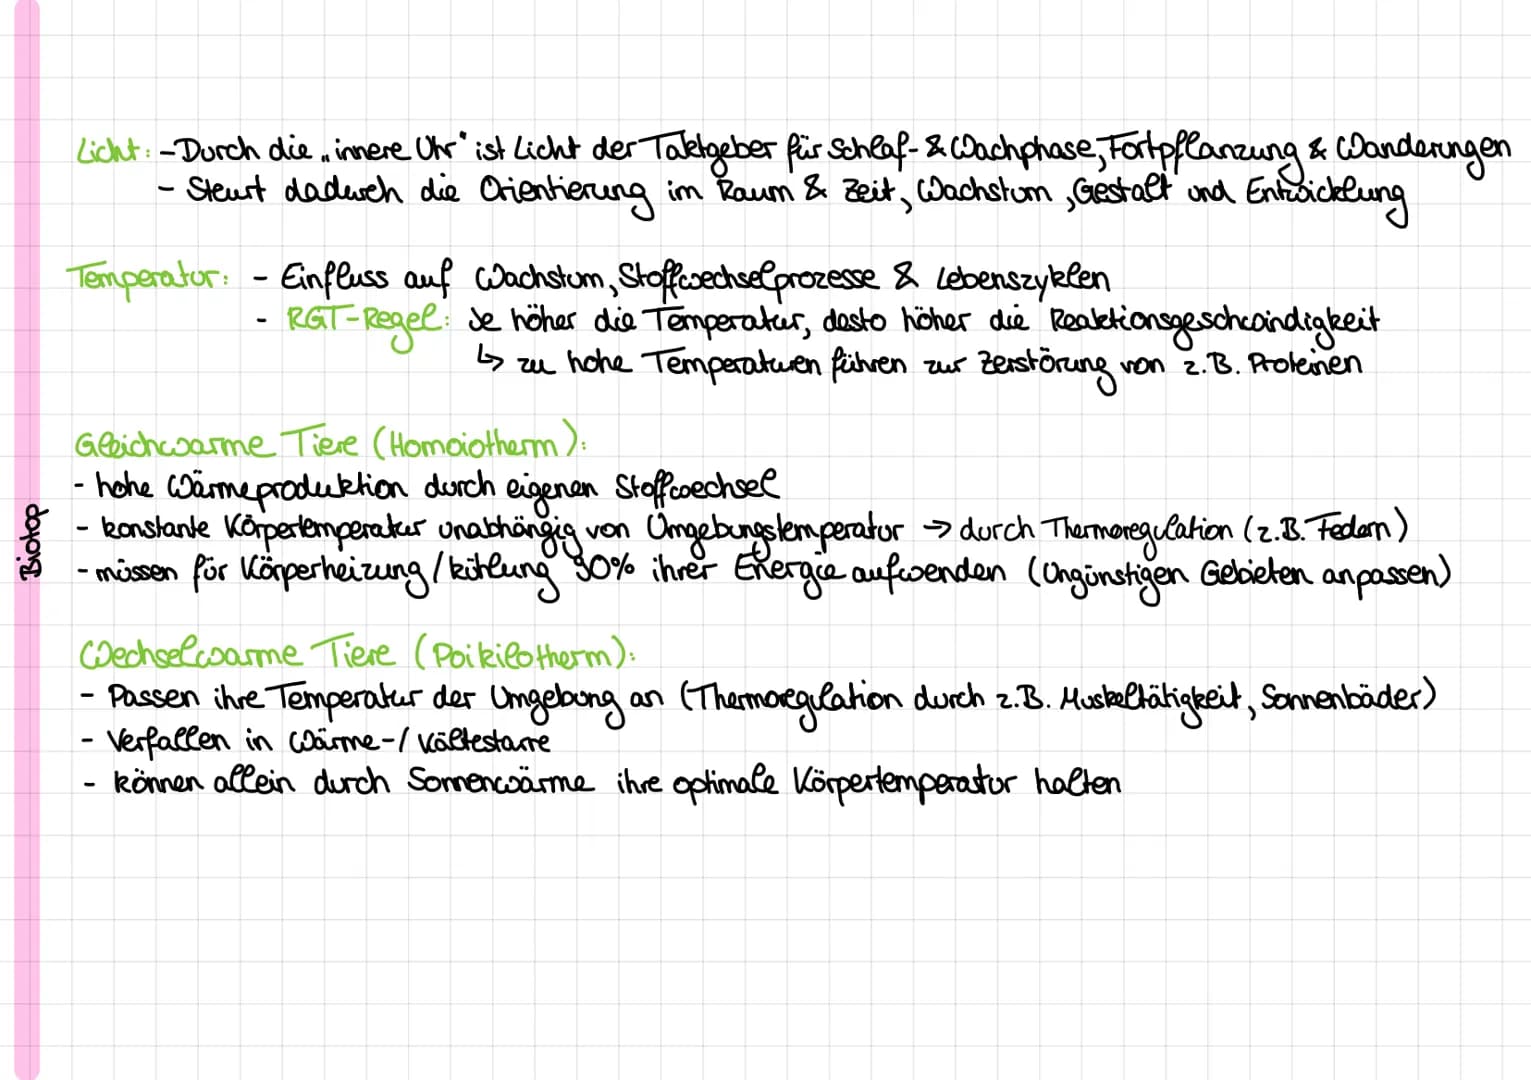 Biotop
Licht: - Durch die „innere Uhr" ist Licht der Taktgeber für Schlaf- & Wachphase, Fortpflanzung & Wanderungen
- Steurt dadurch die Orientierung im Raum & Zeit, Wachstum, Gestalt und Entwicklung
Temperatur: - Einfluss auf Wachstum, Stoffwechselprozesse & Lebenszyklen
- RGT-Regel: Je höher die Temperatur, desto höher die Reaktionsgeschwindigkeit
↳ zu hohe Temperaturen führen zur Zerstörung von z.B. Proteinen
Gleichwarme Tiere (Homoiotherm):
- hohe Wärmeproduktion durch eigenen Stoffwechsel
- konstante Körpertemperatur unabhängig von Umgebungstemperatur → durch Thermoregulation (z.B. Federn)
- müssen für Körperheizung/kühlung 90% ihrer Energie aufwenden (Ungünstigen Gebieten anpassen)
Wechselwarme Tiere (Poikilotherm):
- Passen ihre Temperatur der Umgebung an (Thermoregulation durch z.B. Muskeltätigkeit, Sonnenbäder)
- Verfallen in Wärme-/ Kältestarre
- können allein durch Sonnenwärme ihre optimale Körpertemperatur halten